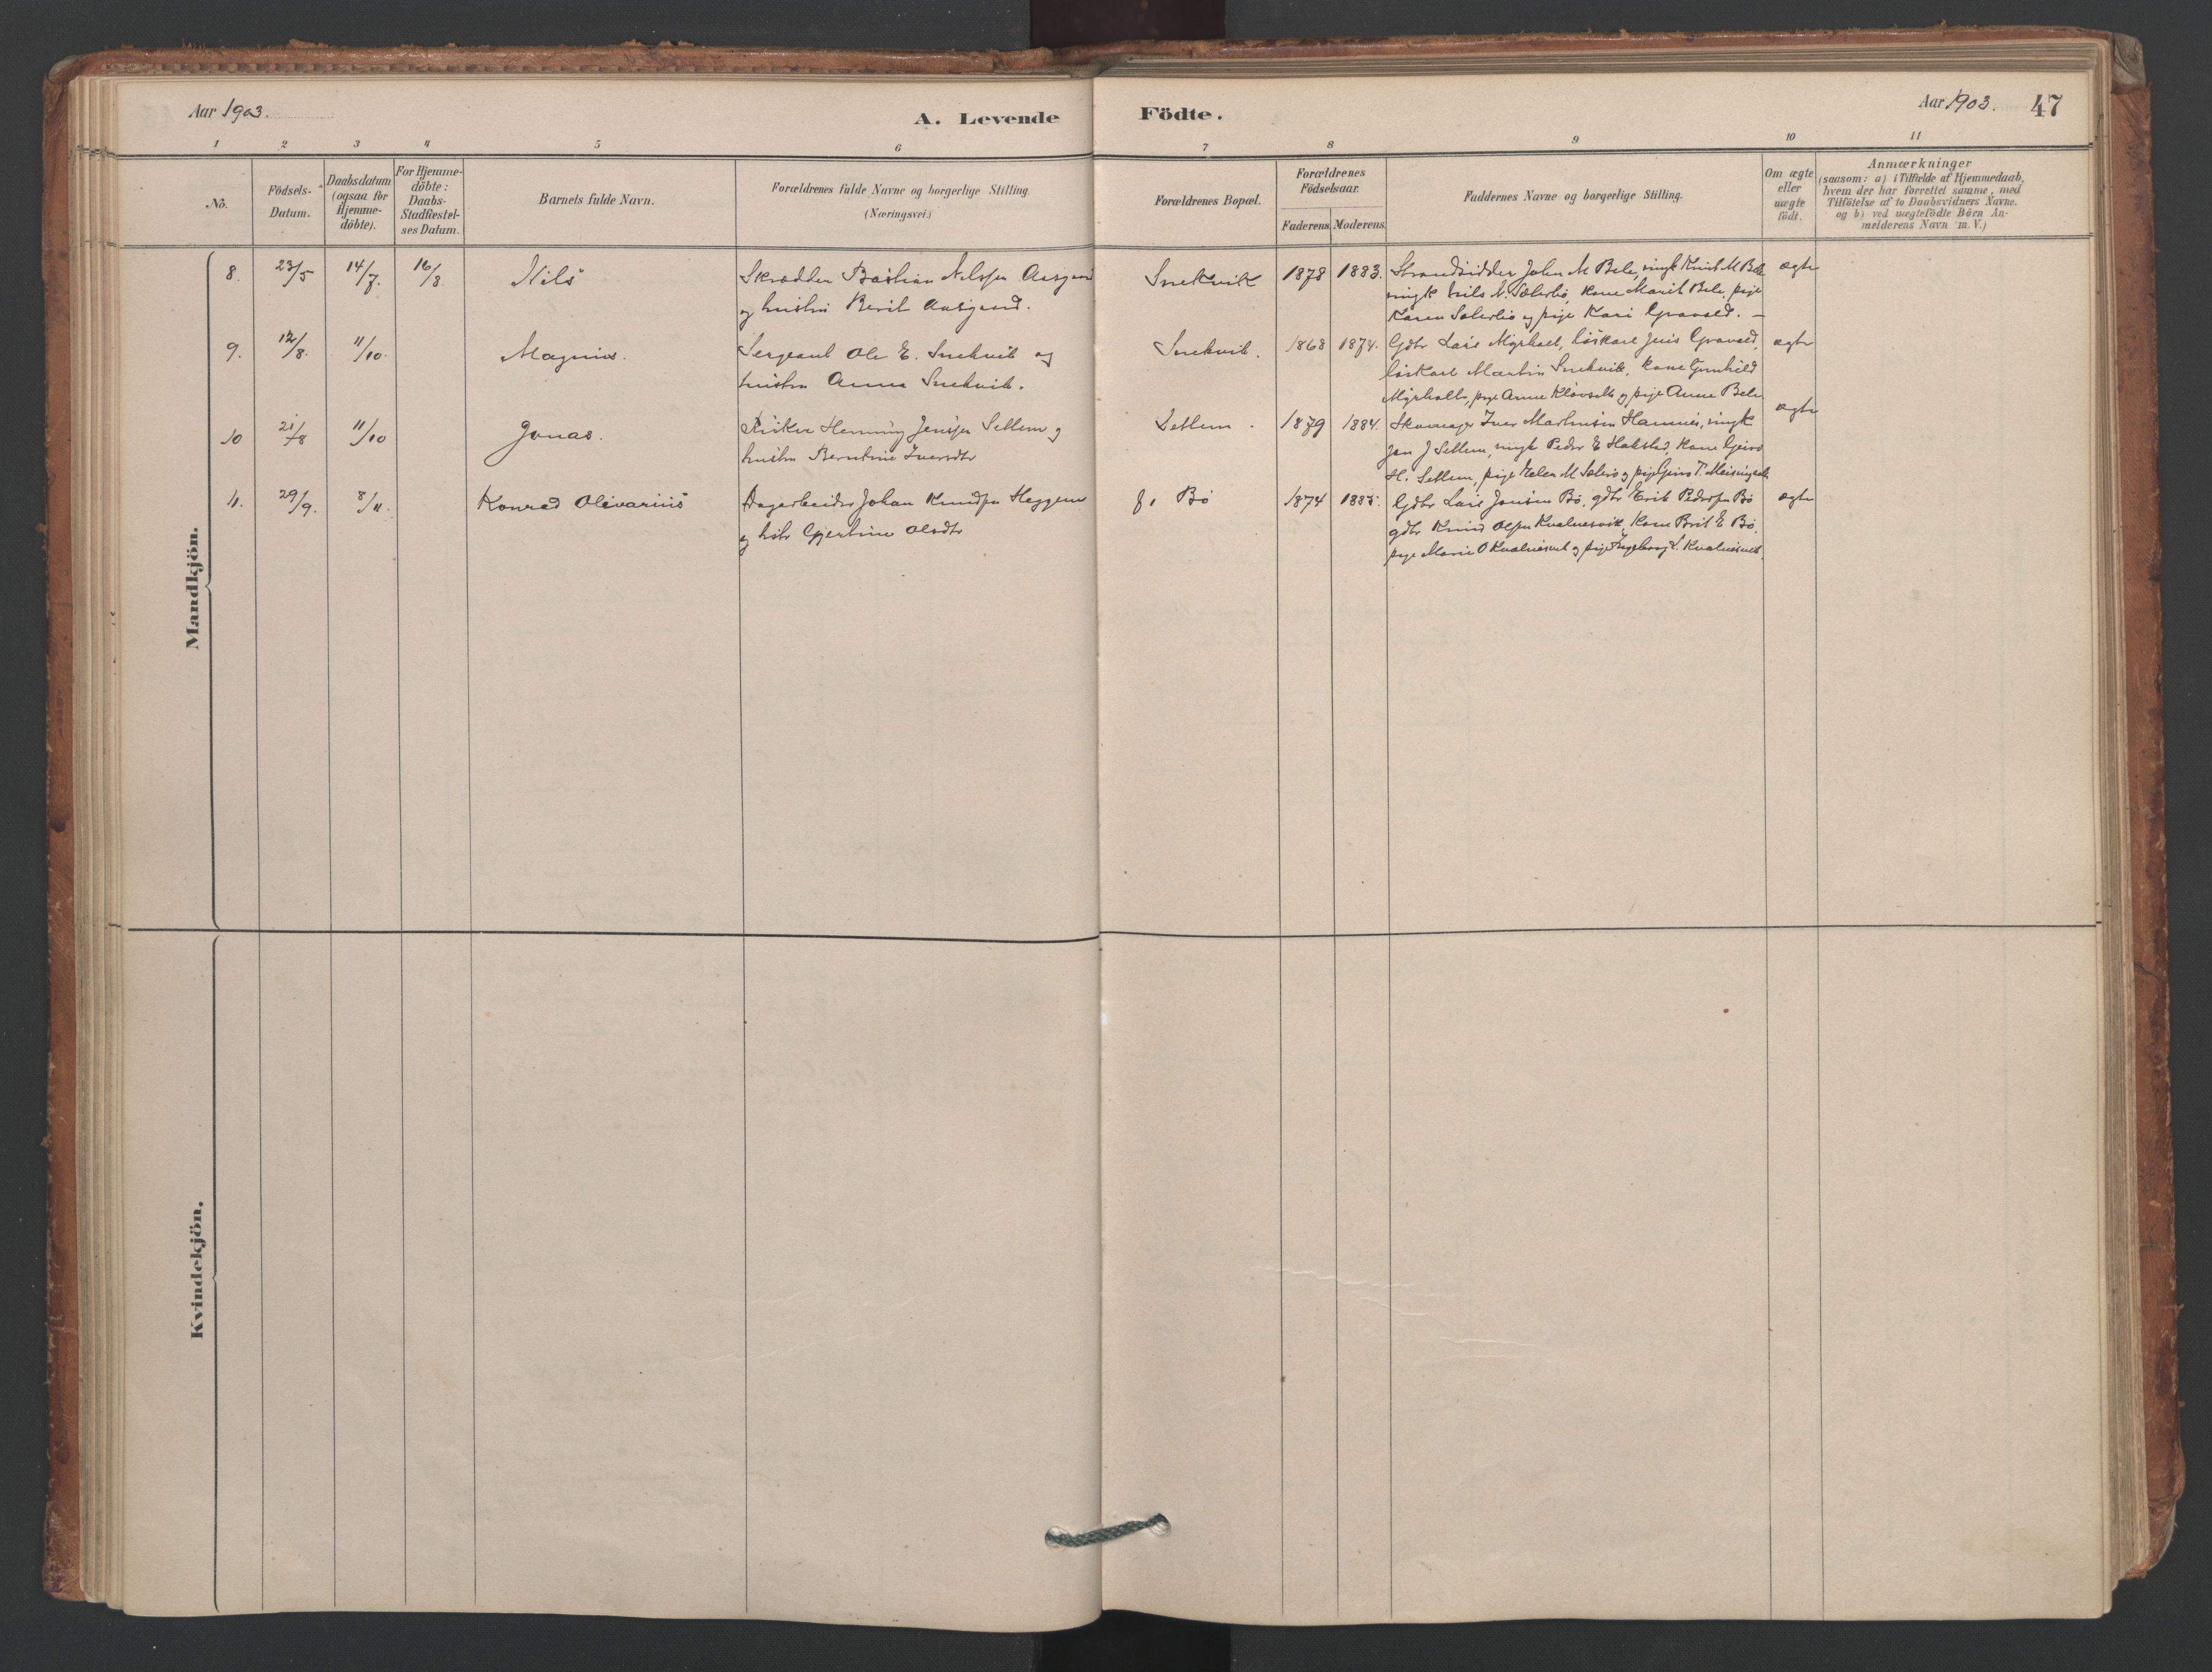 Aar 1903.
A. Levende Födte.
Aar 1903. 47
1 2 3 4 5 6 7 8 9 10 11
No.
Födsels-
Datum.
Daabsdatum
(ogsaa for
Hjemme-
döbte).
For Hjemme-
döbte:
Daabs-
Stadfæstel-
ses Datum.
Barnets fulde Navn.
Forældrenes fulde Navne og borgerlige Stilling.
(Næringsvei.)
Forældrenes Bopæl.
Forældrenes
Födselsaar.
Faderens. Moderens.
Faddernes Navne og borgerlige Stilling.
Om ægte
eller
uægte
födt.
Anmærkninger
(saasom: a) i Tilfælde af Hjemmedaab,
hvem der har forrettet samme, med
Tilföielse af to Daabsvidners Navne.
og b) ved uægtefödte Börn An-
melderens Navn m. V.)
Mandkjön.
8. 23/5 14/7. 16/8 Nils Skrædder Bastian Nilssen Aasgaard
og hustru Berit Aasgaard.
Snekvik 1878 1883. Strandsidder John M Bele, ungk Knut M Bele
ungk Nils N. Sæterbø, kone Marit Bele, pige
Karen Sæterbø og pige Kari Gravvold. –
ægte
9. 12/8. 11/10. Magnus. Sergeant Ole E. Snekvik og
hustru Anna Snekvik.
Snekvik. 1868 1874. Gdbr Lars Myrholt, löskarl Jens Gravvold,
löskarl Martin Snekvik, kone Gunhild
Myrholt, pige Anne Kløvset og pige Anne Bele
ægte
10 21/8 11/10 Jonas. Fisker Henning Jenssen Settem og
hustru Berntine Iversdtr
Settem. 1879 1884. Skomager Iver Martinsen Hamnes, ungk
Jon J Settem, ungk Peder E Halsted, kone
H. Settem, pige Elen M og pige T.
ægte
11. 29/9. 8/11. Konrad Olivarius Dagarbeider Johan Knudsen Heggem
og hstr Gjertine Olsdtr
f. Bø 1874 1885. Gdbr Lars Jonsen Bø, gdbr Erik Pedersen Bø
gdbr Knud Olsen Kvalnesvik, kone Brit E Bø,
pige Marie O Kvalnesvik og pige Ingeborg L. Kvalnesvik.
ægte
Kvindekjön.